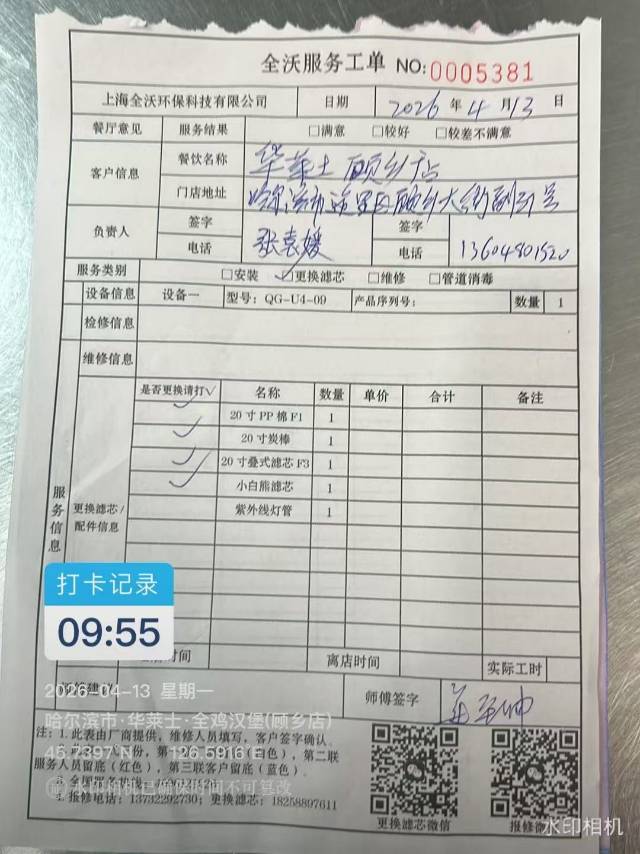 全沃服务工单 NO:0005381
上海全沃环保科技有限公司 日期 2026年4月13日
餐厅意见 服务结果 □满意 □较好 □较差不满意
客户信息 餐饮名称 华莱士 顾乡店
门店地址 哈尔滨市道里区顾乡大街副51号
负责人 签字 张袁媛 签字
电话 电话 13604801520
服务类别 □安装 ☑更换滤芯 □维修 □管道消毒
设备信息 设备一 型号:QG-U4-09 产品序列号: 数量 1
检修信息
维修信息
服务信息
更换滤芯/配件信息
是否更换请打√ 名称 数量 单价 合计 备注
√ 20寸PP棉F1 1
√ 20寸炭棒 1
√ 20寸叠式滤芯F3 1
√ 小白熊滤芯 1
紫外线灯管 1
打卡记录
09:55
时间 离店时间 实际工时
建议 师傅签字
2026-04-13 星期一
哈尔滨市·华莱士·全鸡汉堡(顾乡店)
注:1.此表由厂商提供,维修人员填写,客户签字确认。
45.7397°N 126.5916°E
份, (白色),第二联
服务人员留底(红色),第三联客户留底(蓝色)。
3.全国服务
水印相机已确保时间不可篡改
4.报修电话:13732292730;更换滤芯:18258897611
更换滤芯微信 报修微
水印相机